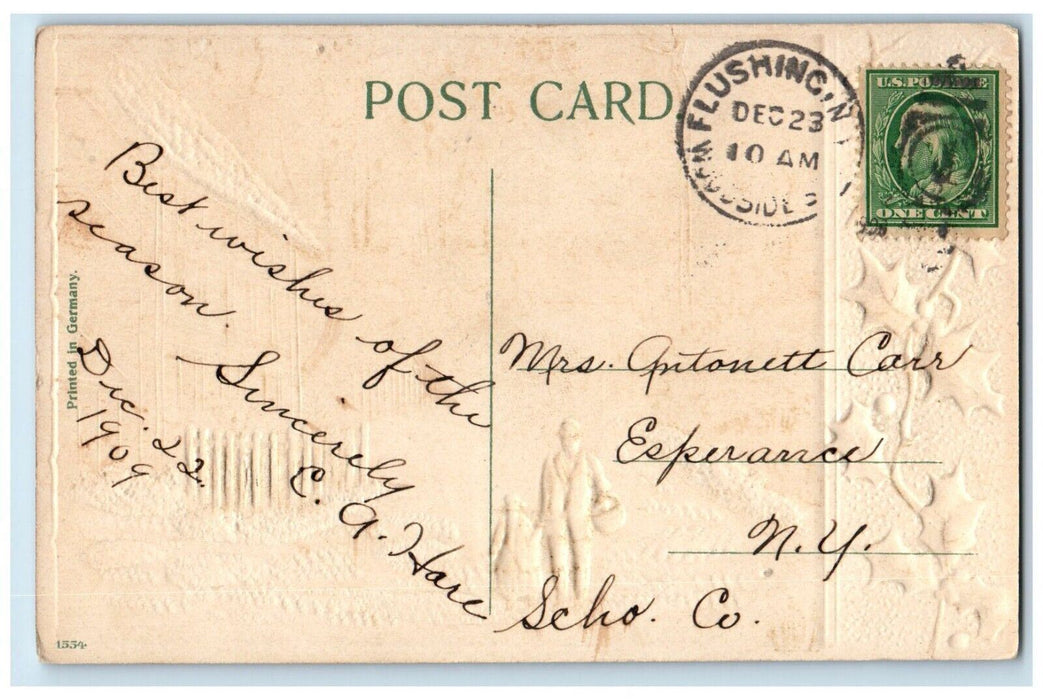 POST CARD
FLUSHING, N
DEC 23
10 AM
U.S. POSTAGE
ONE CENT
Best wishes of the
season.
Sincerely
E. A. Hare
Dec. 22.
1909
Printed in Germany.
Mrs. Antonett Carr
Esperance
N.Y.
Scho. Co.
1554